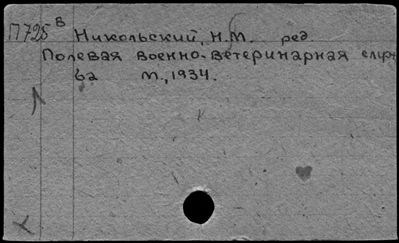 П725 В Никольский, Н.М. ред.
Полевая военно-ветеринарная служ
ба М., 1934.